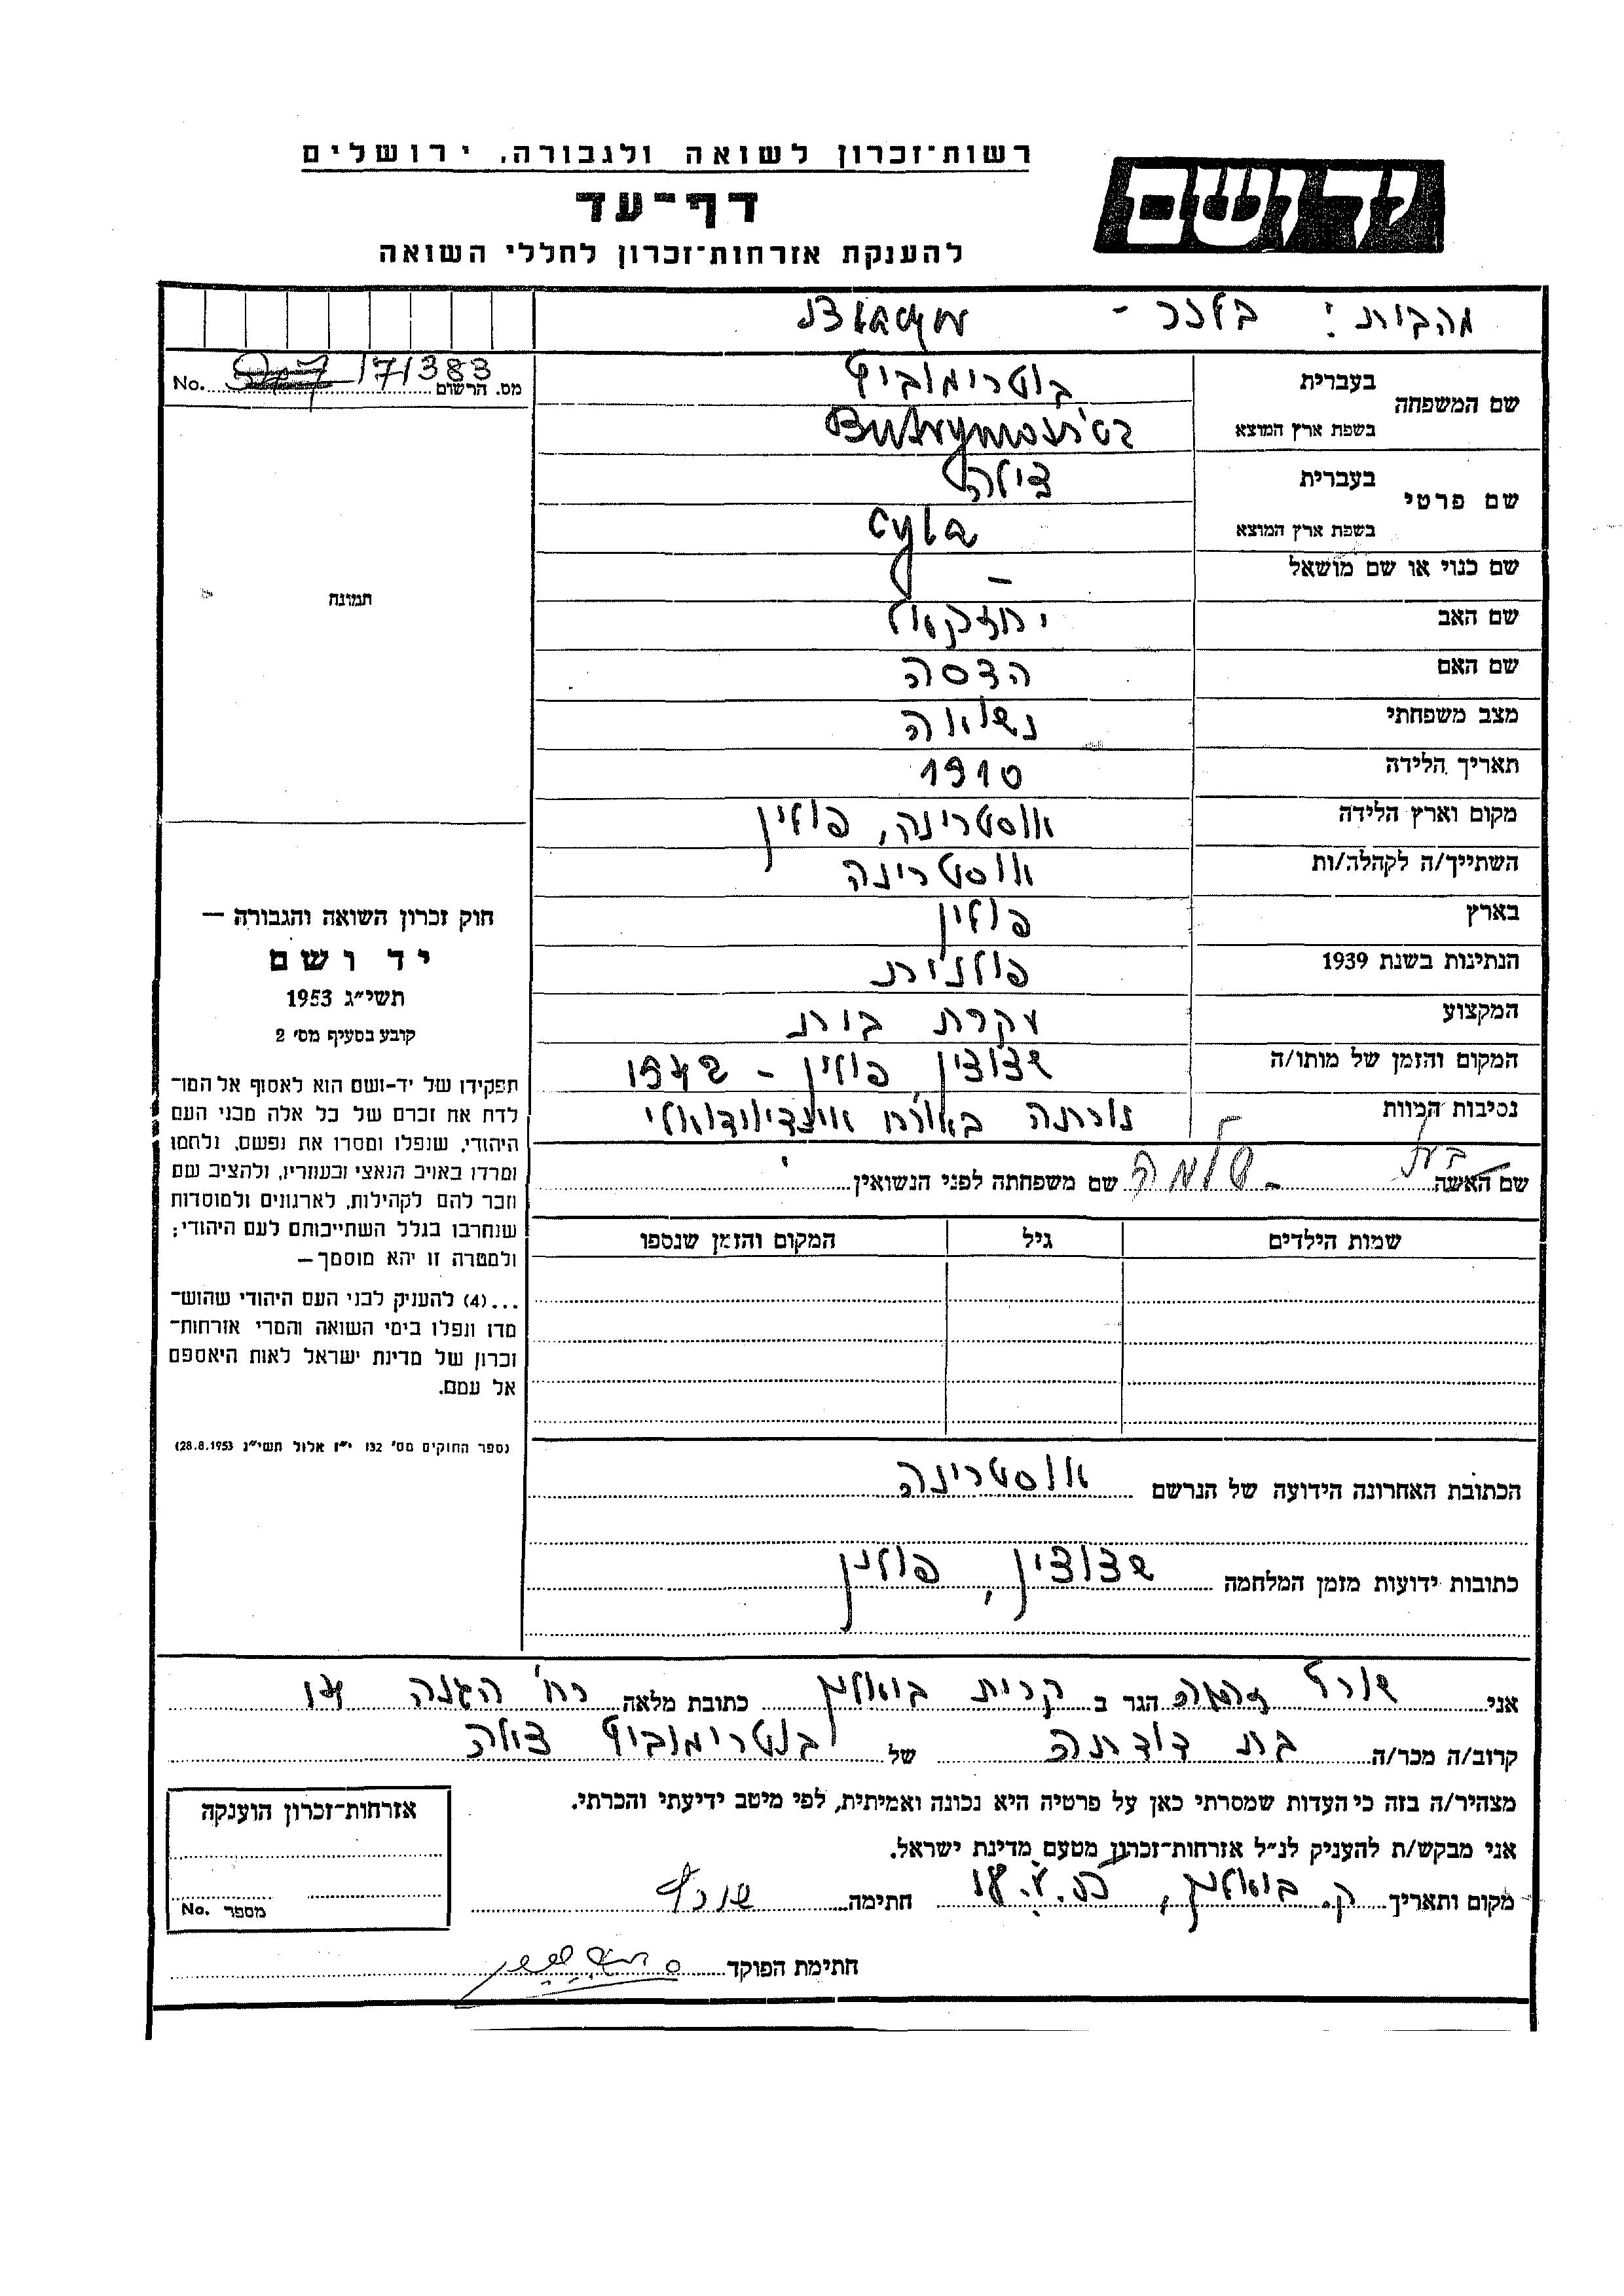 רשות־זכרון לשואה ולגבורה, ירושלים
יד ושם
דף־עד
להענקת אזרחות־זכרון לחללי השואה
מהבית: בלנר -
מס. הרשום 171383 No.
שם המשפחה בעברית בוטרימוביץ
בשפת ארץ המוצא
שם פרטי בעברית צילה
בשפת ארץ המוצא Cyla
שם כנוי או שם מושאל -
תמונה
שם האב יחזקאל
שם האם הדסה
מצב משפחתי נשואה
תאריך הלידה 1910
מקום וארץ הלידה אוסטרינה, פולין
השתייך/ה לקהלה/ות אוסטרינה
בארץ פולין
הנתינות בשנת 1939 פולנית
המקצוע עקרת בית
המקום והזמן של מותו/ה שצוצין פולין - 1942
נסיבות המוות נורתה באורח אינדיוידואלי
שם האשה בת - שלמה שם משפחתה לפני הנשואין
שמות הילדים גיל המקום והזמן שנספו
חוק זכרון השואה והגבורה —
יד ושם
תשי״ג 1953
קובע בסעיף מס׳ 2
תפקידו של יד-ושם הוא לאסוף אל המו־
לדת את זכרם של כל אלה מבני העם
היהודי, שנפלו ומסרו את נפשם, נלחמו
ומרדו באויב הנאצי ובעוזריו, ולהציב שם
וזכר להם לקהילות, לארגונים ולמוסדות
שנחרבו בגלל השתייכותם לעם היהודי;
ולמטרה זו יהא מוסמך —
...(4) להעניק לבני העם היהודי שהוש־
מדו ונפלו בימי השואה והמרי אזרחות־
זכרון של מדינת ישראל לאות היאספם
אל עמם.
(ספר החוקים מס׳ 132 י״ז אלול תשי״ג 28.8.1953)
הכתובת האחרונה הידועה של הנרשם אוסטרינה
כתובות ידועות מזמן המלחמה שצוצין, פולין
אני שורץ זהבה הגר ב קרית ביאליק כתובת מלאה רח׳ הגנה 14
קרוב/ה מכר/ה בת דודתה של בוטרימוביץ צילה
מצהיר/ה בזה כי העדות שמסרתי כאן על פרטיה היא נכונה ואמיתית, לפי מיטב ידיעתי והכרתי.
אני מבקש/ת להעניק לנ״ל אזרחות־זכרון מטעם מדינת ישראל.
מקום ותאריך ק. ביאליק, חתימה שורץ
חתימת הפוקד
אזרחות־זכרון הוענקה
מספר No.